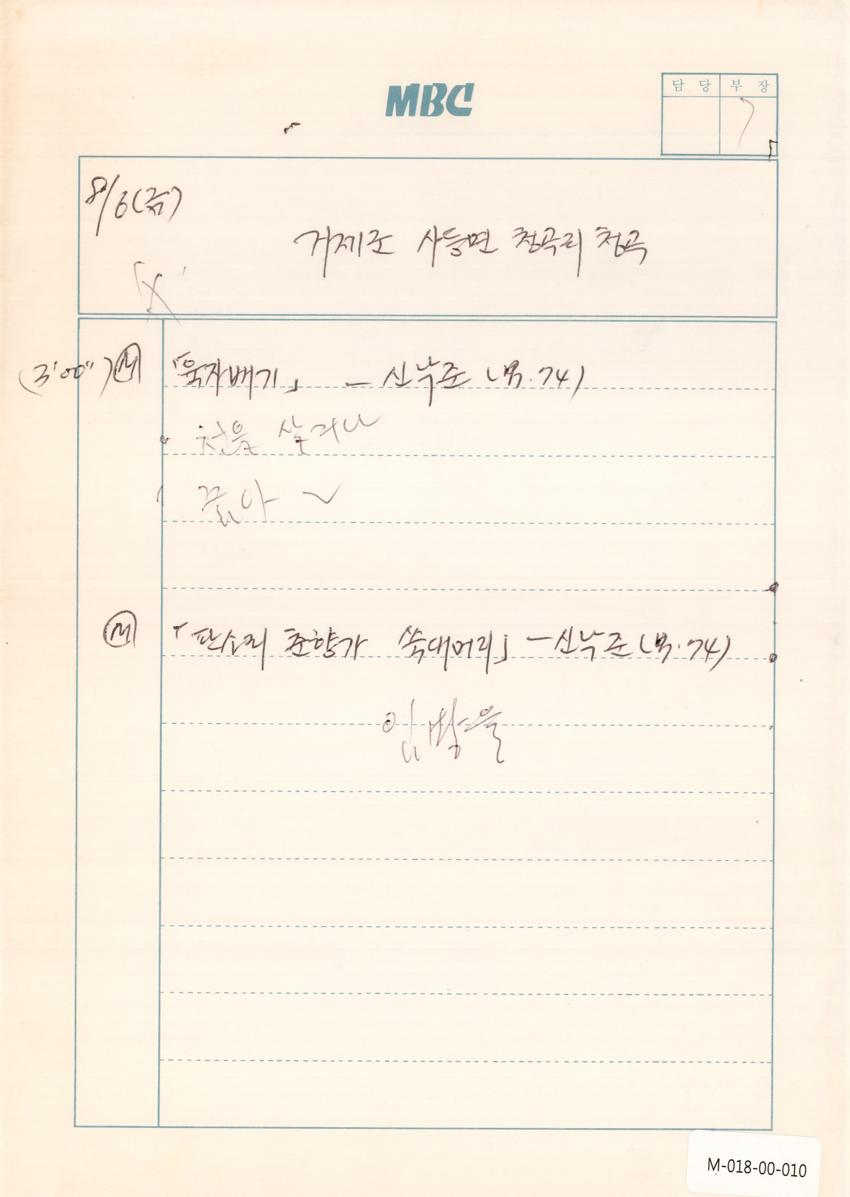 MBC
담 당 부 장
8/6(금)
거제군 사등면 청곡리 청곡
(3'00") Ⓜ 「육자배기」 — 신낙준 (男.74)
Ⓜ 「판소리 춘향가 쑥대머리」 — 신낙준 (男.74)
M-018-00-010